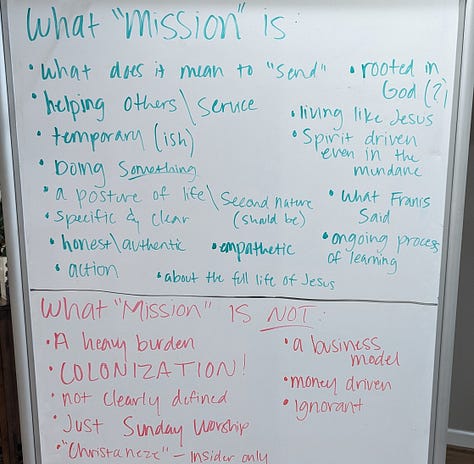 What "Mission" is:
• What does it mean to "send"
• helping others \ service
• temporary (ish)
• Doing Something
• a posture of life \ Second nature
(should be)
• specific & clear
• honest \ authentic
• empathetic
• action
• about the full life of Jesus
• rooted in
God (?)
• living like Jesus
• Spirit driven
even in the
mundane
• What Franis
Said
• ongoing process
of learning
What "Mission" IS NOT:
• A heavy burden
• COLONIZATION!
• not clearly defined
• Just Sunday Worship
• "Christaneze" – Insider only
• a business
model
• money driven
• Ignorant